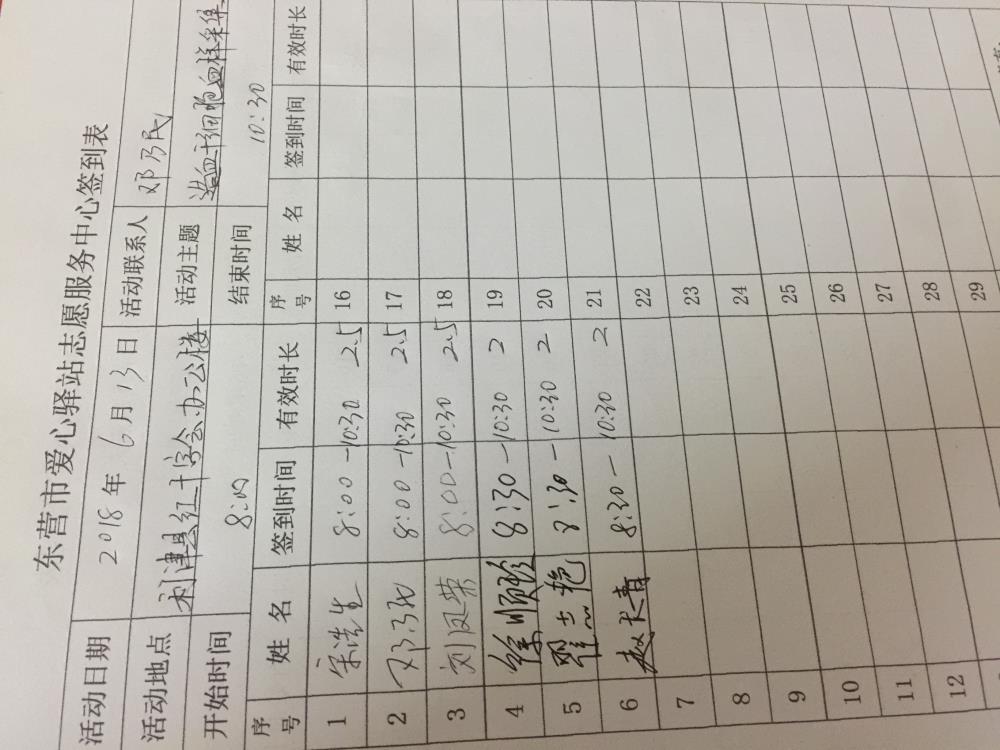 东营市爱心驿站志愿服务中心签到表
活动日期 2018年6月13日 活动联系人 邓乃民
活动地点 利津县红十字会办公楼 活动主题 造血干细胞血样采集
开始时间 8:00 结束时间 10:30
序号 姓名 签到时间 有效时长 序号 姓名 签到时间 有效时长
1 宋浩生 8:00-10:30 2.5 16
2 8:00-10:30 2.5 17
3 刘凤荣 8:00-10:30 2.5 18
4 徐顺珍 8:30-10:30 2 19
5 翟志艳 8:30-10:30 2 20
6 赵长青 8:30-10:30 2 21
7 22
8 23
9 24
10 25
11 26
12 27
28
29